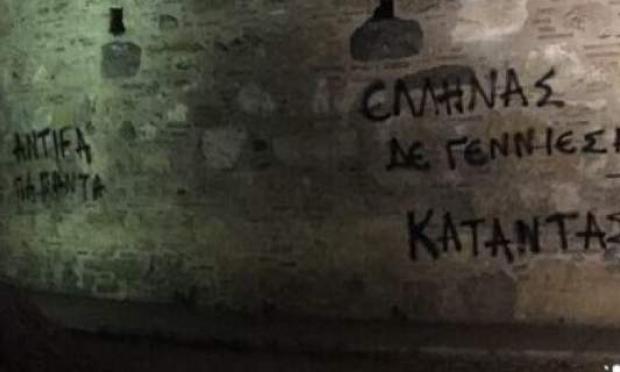 ΑΝΤΙFA
ΓΙΑ ΠΑΝΤΑ
ΕΛΛΗΝΑΣ
ΔΕ ΓΕΝΝΙΕΣΑ
ΚΑΤΑΝΤΑΣ